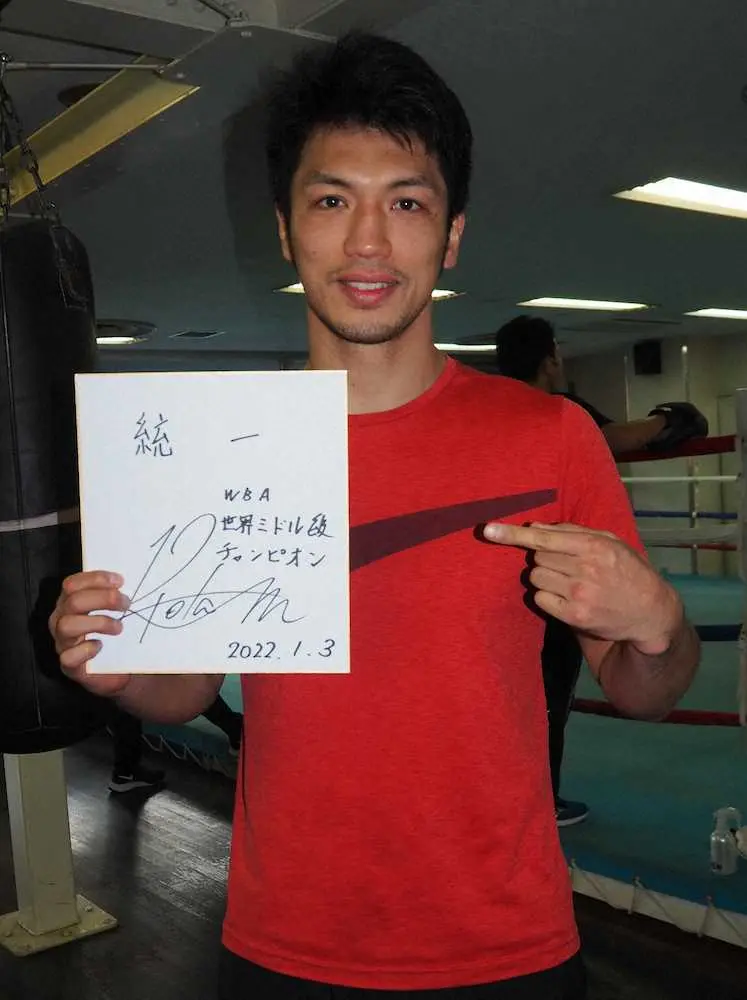 統一
WBA
世界ミドル級
チャンピオン
2022.1.3